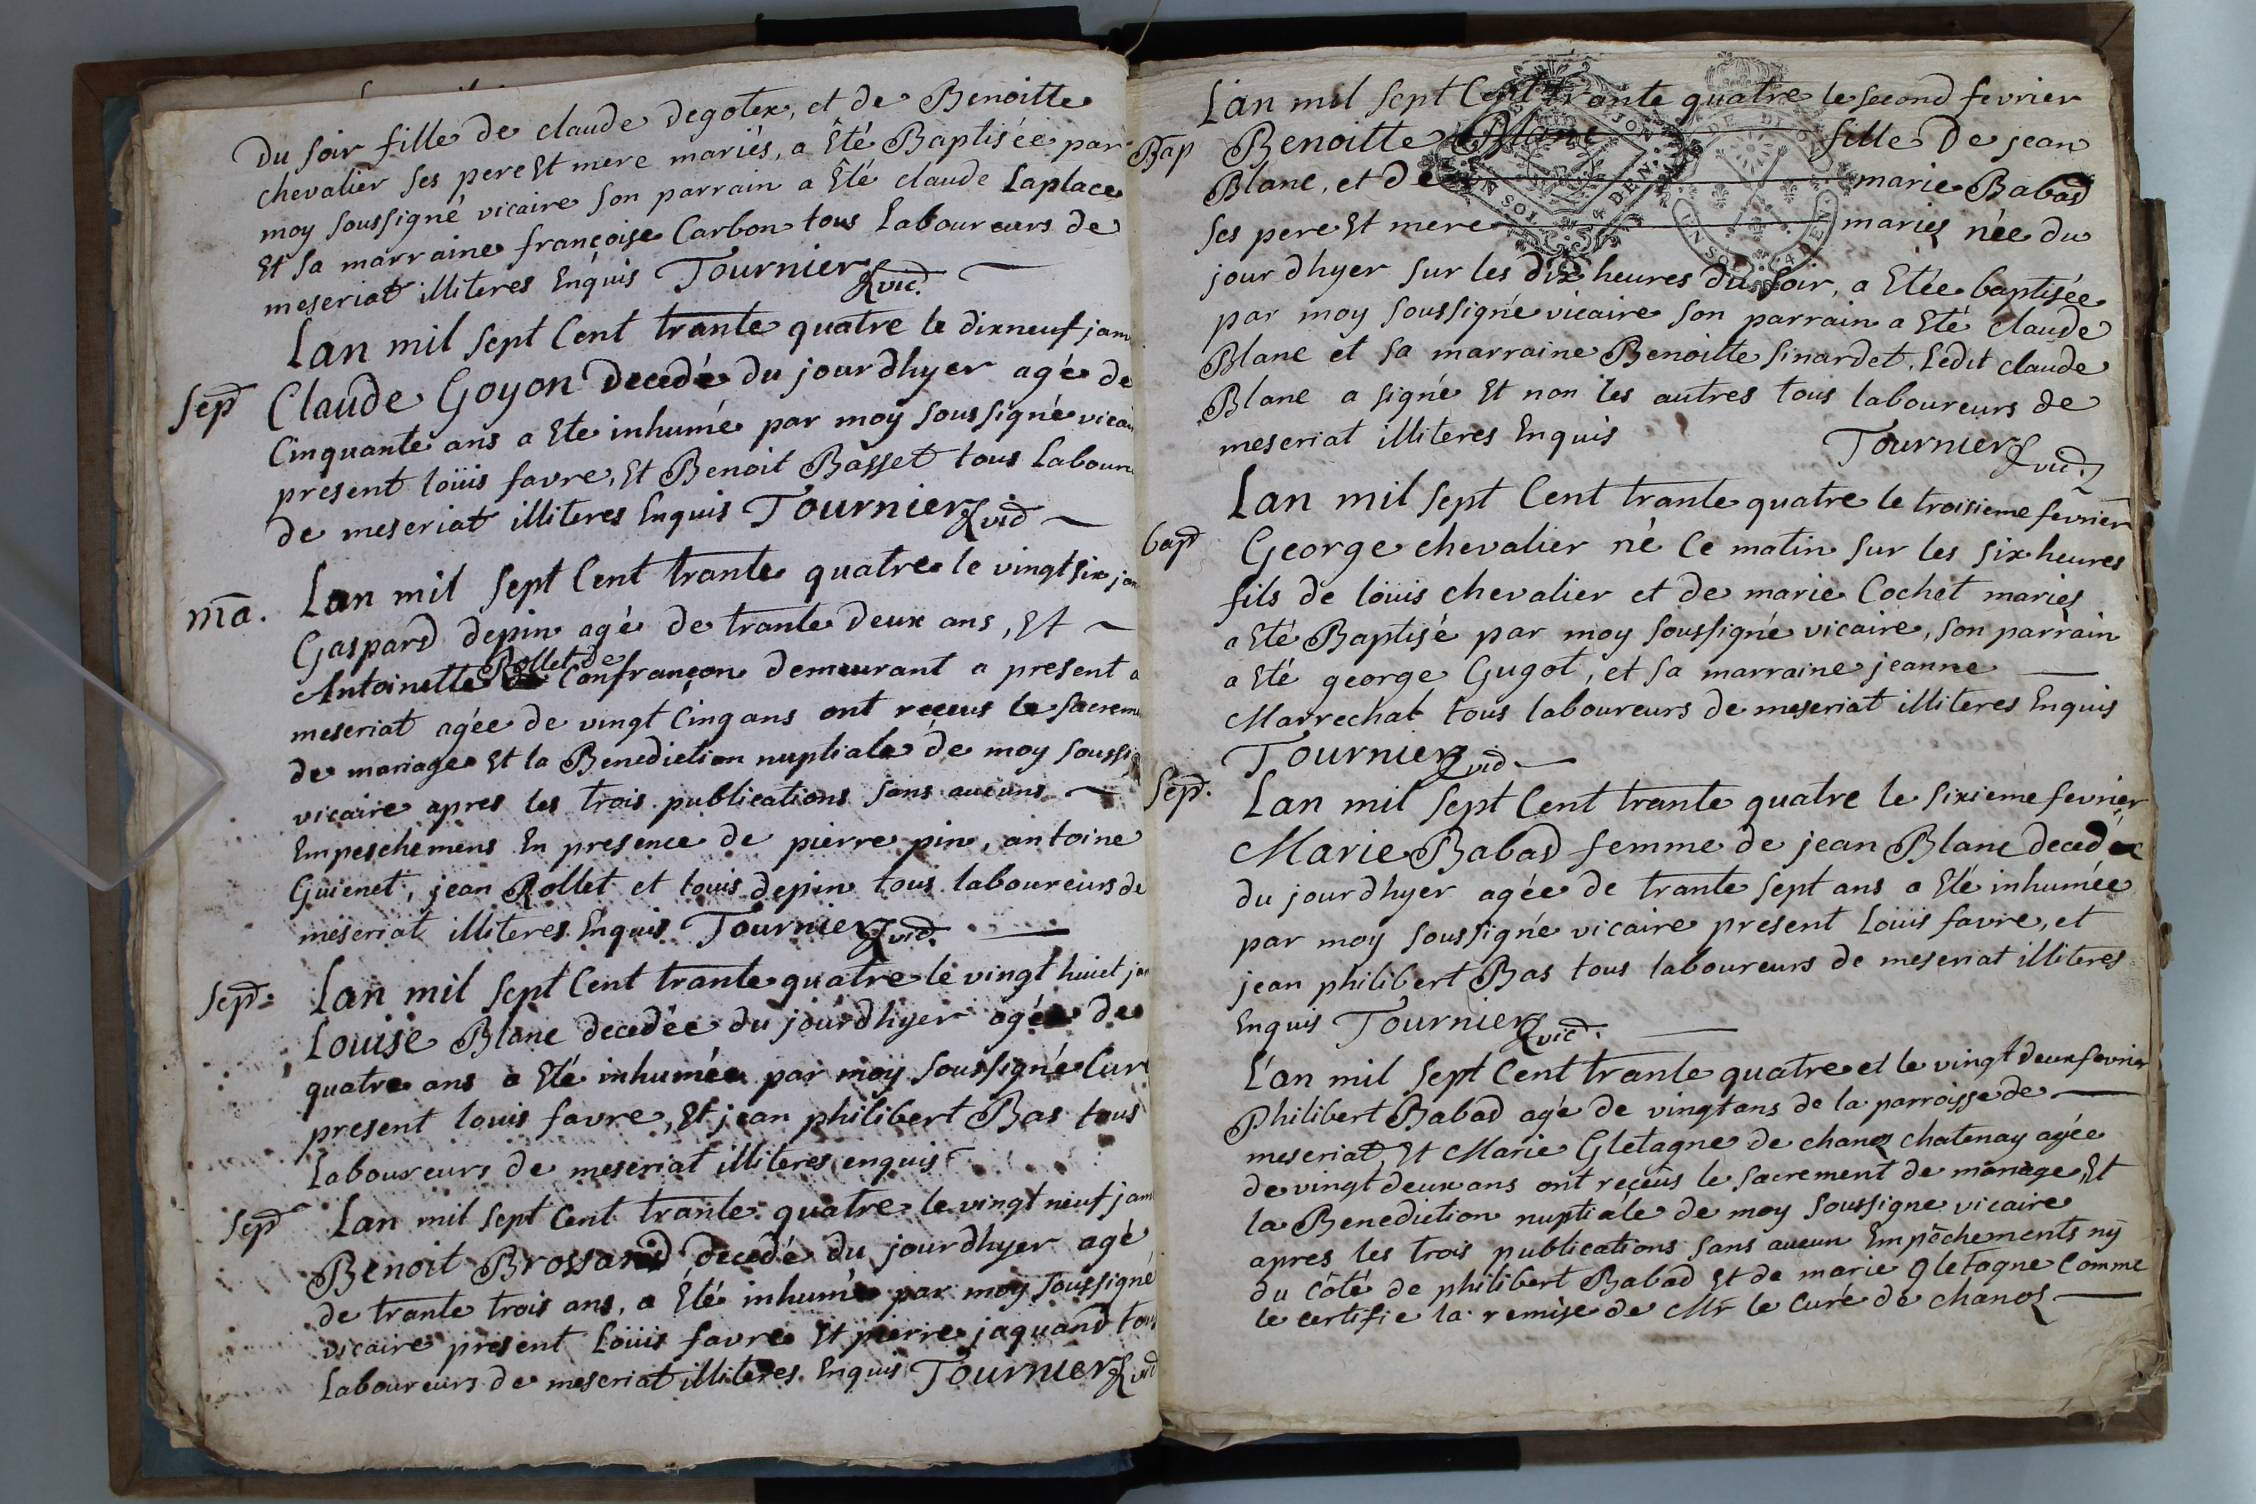 Du soir fille de claude degotex, et de Benoitte
chevalier ses pere Et mere mariés, a Êté Baptisée par
moy soussigné vicaire son parrain a Êté claude Laplace
Et sa marraine françoise Carbon tous Laboureurs de
meseriat illiteres Enquis Tournier vic.
Lan mil sept Cent trante quatre le dixneuf janv
sep Claude Goyon Decedé du jourdhyer agé de
Cinquante ans a Eté inhumé par moy soussigné vicai
present loüis favre, Et Benoit Basset tous Laboure
de meseriat illiteres Enquis Tournier vic
Lan mil sept Cent trante quatre le vingt six jan
ma. Gaspard depin agé de trante deux ans, Et
Antoinette Rollet de Confrançon demeurant a present a
meseriat agée de vingt Cinq ans ont receus le sacrem
de mariage Et la Benediction nuptiale de moy soussig
vicaire apres les trois publications sans aucuns
Empeschemens En presence de pierre pin, antoine
Guienet, jean Rollet et louis depin tous laboureurs de
meseriat illiteres Enquis Tournier vic.
sep= Lan mil sept Cent trante quatre le vingt huict jan
Louise Blanc decedée du jourdhyer agée de
quatre ans a Eté inhumée par moy soussigné Cur
present louis favre, Et jean philibert Bas tous
Laboureurs de meseriat illiteres enquis
sep Lan mil sept Cent trante quatre le vingt neuf janv
Benoit Brossard decedé du jourdhyer agé
de trante trois ans, a Êté inhumé par moy soussigné
vicaire present Loüis favre Et pierre jaquand tous
Laboureurs de meseriat illiteres Enquis Tournier vic
Lan mil sept Cent trante quatre le second fevrier
Bap Benoitte Blanc fille De jean
Blanc, et de marie Babad
ses pere Et mere mariés née du
jour dhyer sur les dix heures du soir, a Etée baptisée
par moy soussigné vicaire son parrain a Eté claude
Blanc et sa marraine Benoitte Sinardet. Ledit claude
Blanc a signé Et non les autres tous laboureurs de
meseriat illiteres Enquis Tournier vic.
Lan mil sept Cent trante quatre le troisieme fevrier
bap George chevalier né Ce matin sur les six heures
fils de loüis chevalier et de marie Cochet mariés
a Eté Baptisé par moy soussigné vicaire, son parrain
a Eté george Gugot, et sa marraine jeanne
Marrechal tous laboureurs de meseriat illiteres Enquis
Tournier vic
Sep. Lan mil sept Cent trante quatre le sixieme fevrier
Marie Babad femme de jean Blanc decedée
du jourdhyer agée de trante sept ans a Eté inhumée
par moy soussigné vicaire present Loüis favre, et
jean philibert Bas tous laboureurs de meseriat illiteres
Enquis Tournier vic.
L'an mil sept Cent trante quatre et le vingt deux fevrier
Philibert Babad agé de vingt ans de la parroisse de
meseriat Et Marie Gletagne de chanos chatenay agée
de vingt deux ans ont reçeus le sacrement de mariage Et
la Benediction nuptiale de moy soussigne vicaire
apres les trois publications sans aucun Empêchements ny
du côté de philibert Babad Et de marie gletagne Comme
le certifie la remise de Mr le Curé de chanos